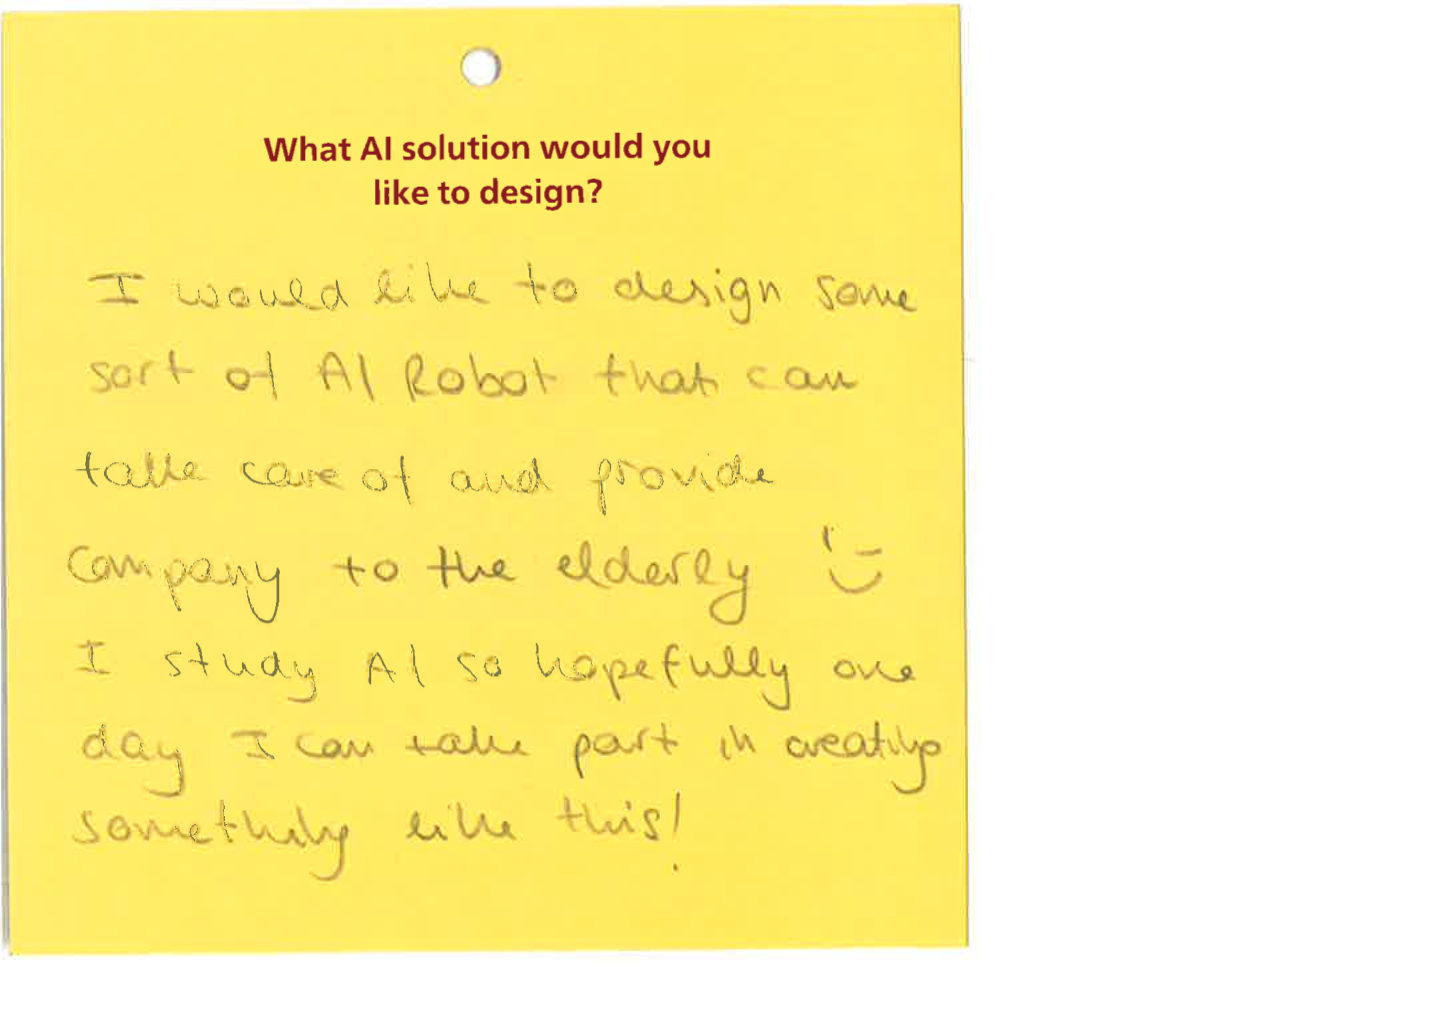 What AI solution would you
like to design?
I would like to design some
sort of AI Robot that can
take care of and provide
company to the elderly :)
I study AI so hopefully one
day I can take part in creating
something like this!